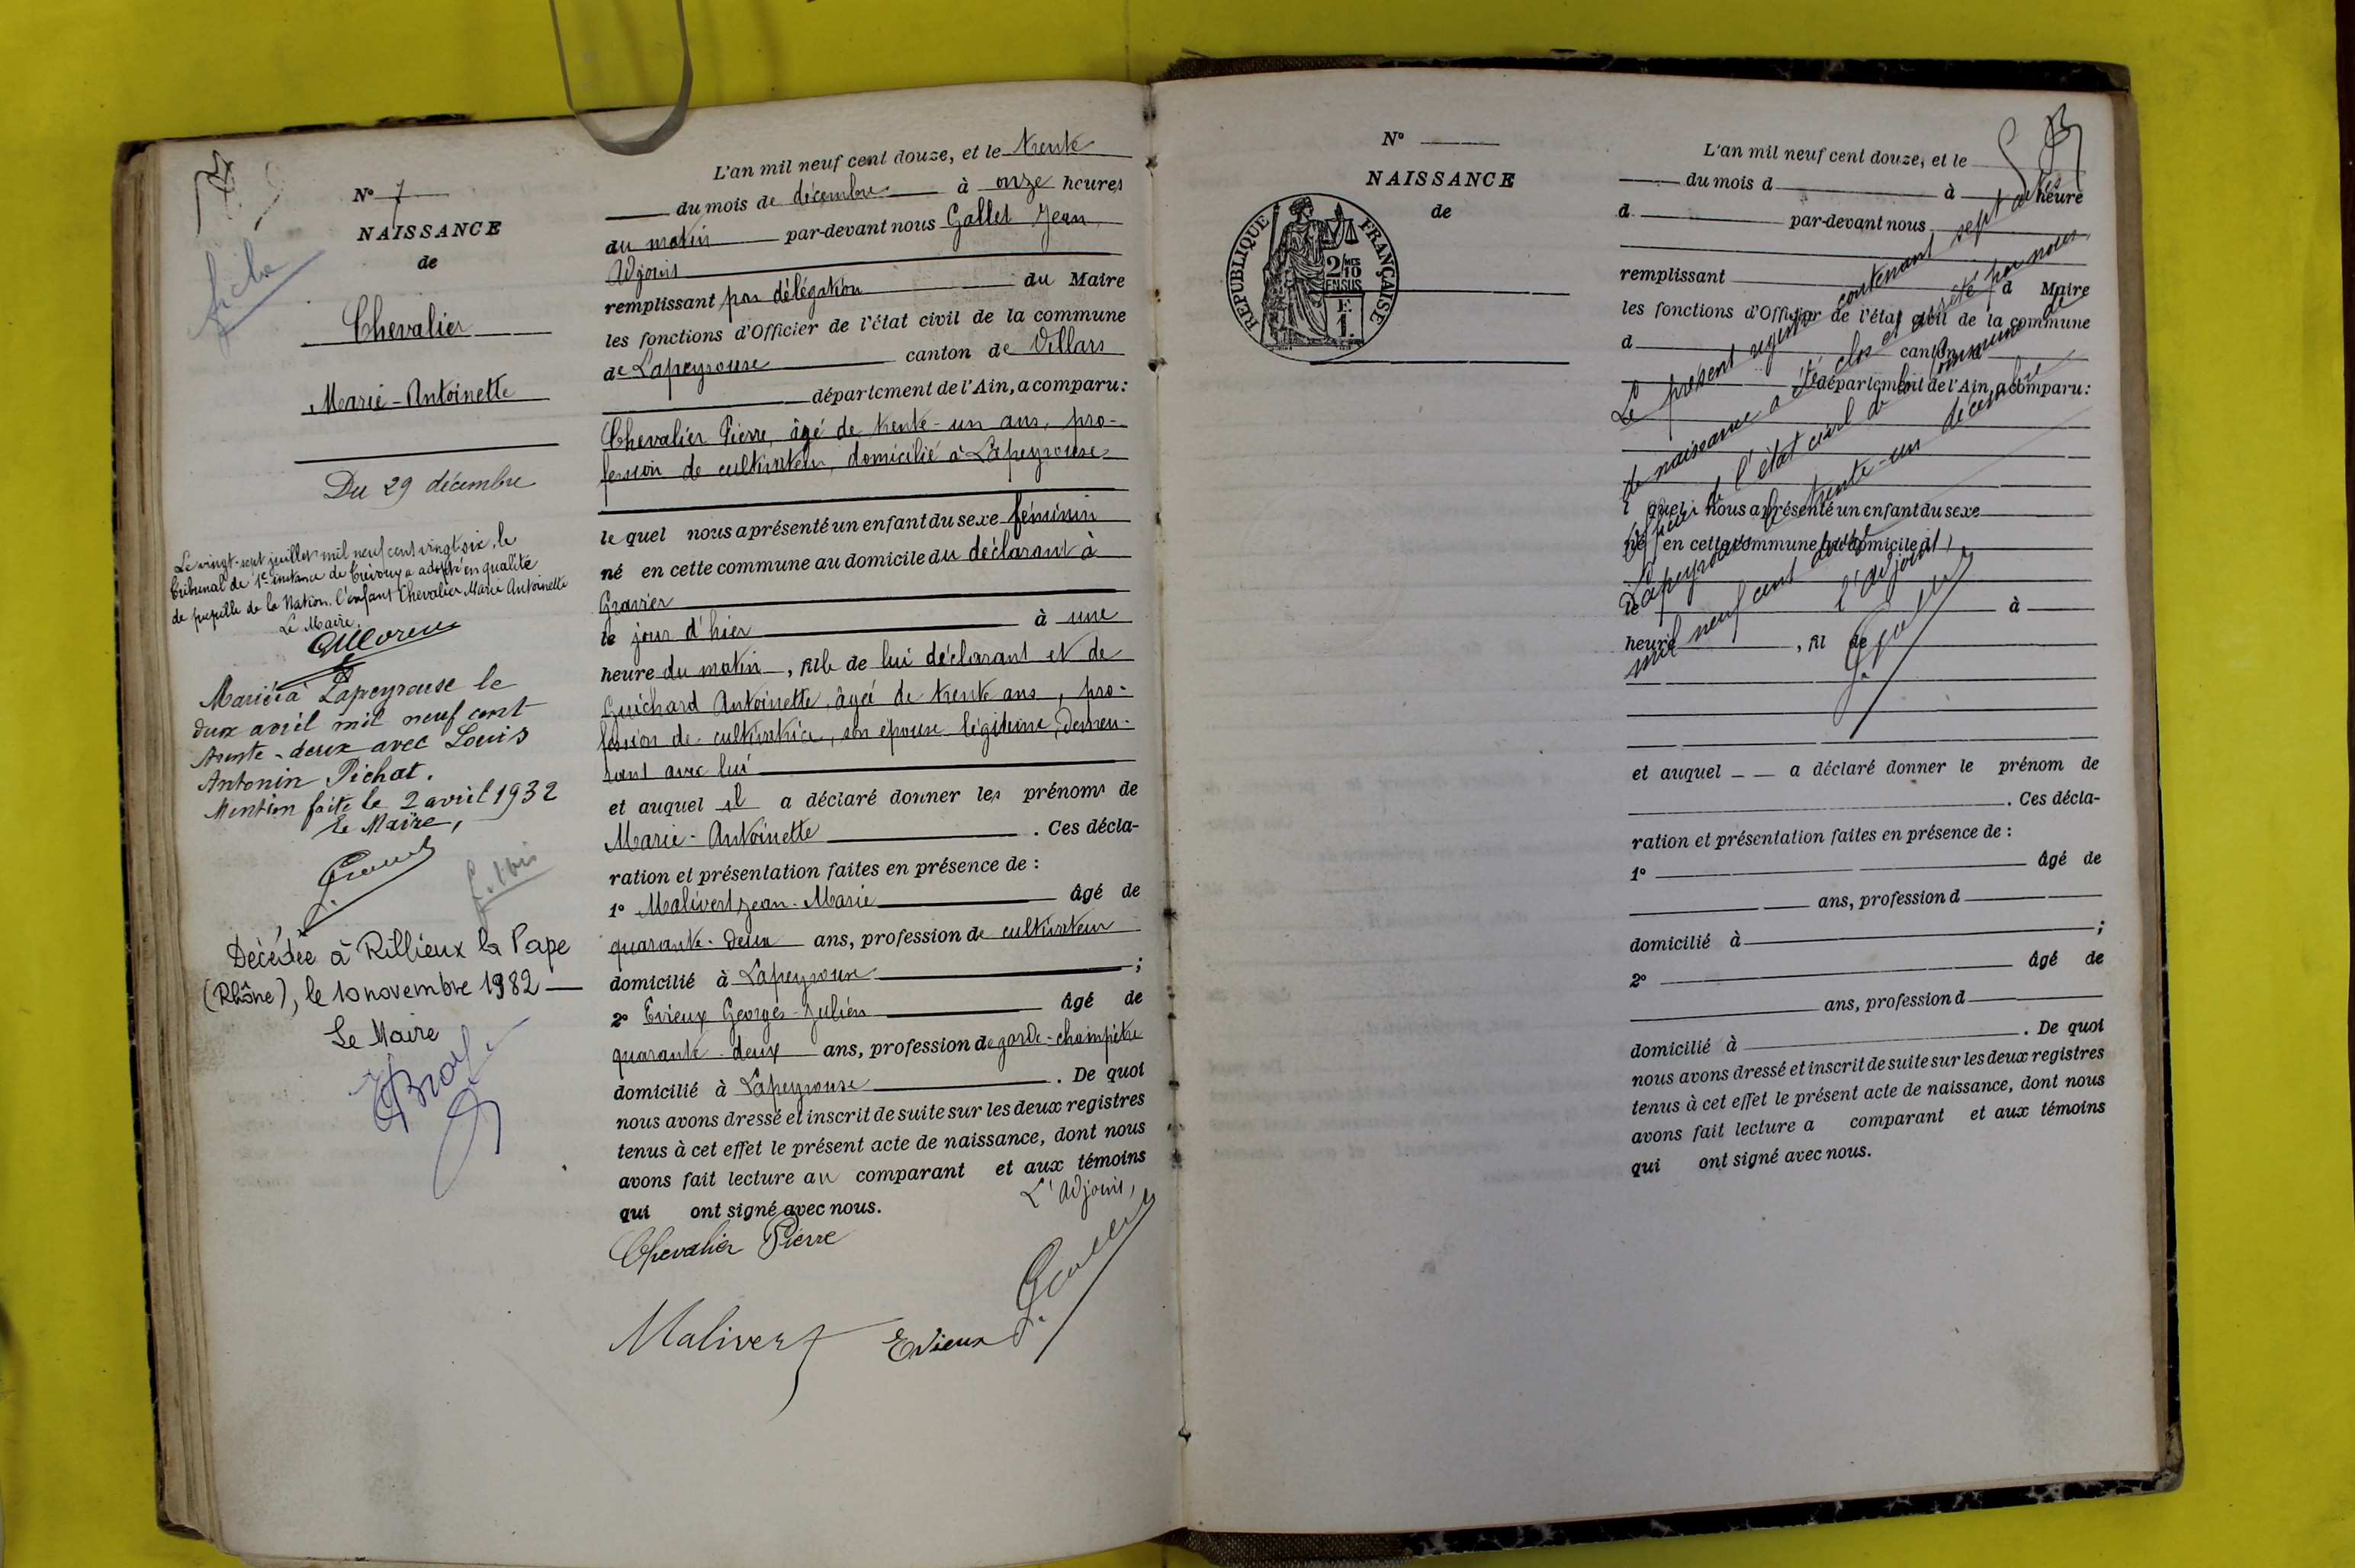 N° 7
NAISSANCE
de
Chevalier
Marie-Antoinette
Du 29 décembre
Le vingt-sept juillet mil neuf cent vingt-six, le
Tribunal de 1re instance de Trévoux a adopté en qualité
de pupille de la Nation, l'enfant Chevalier Marie Antoinette
Le Maire,
Mariée à Lapeyrouse le
deux avril mil neuf cent
trente-deux avec Louis
Antonin Pichat.
Mention faite le 2 avril 1932
Le Maire,
Décédée à Rillieux la Pape
(Rhône), le 10 novembre 1982
Le Maire
L'an mil neuf cent douze, et le trente
du mois de décembre à onze heures
du matin par-devant nous Gallet Jean,
Adjoint
remplissant par délégation du Maire
les fonctions d'Officier de l'état civil de la commune
de Lapeyrouse canton de Villars
département de l'Ain, a comparu:
Chevalier Pierre, âgé de trente-un ans, pro-
fession de cultivateur, domicilié à Lapeyrouse
le quel nous a présenté un enfant du sexe féminin
né en cette commune au domicile du déclarant à
Gravier
le jour d'hier à une
heure du matin, fille de lui déclarant et de
Guichard Antoinette, âgée de trente ans, pro-
fession de cultivatrice, son épouse légitime, demeu-
rant avec lui
et auquel il a déclaré donner les prénoms de
Marie-Antoinette. Ces décla-
ration et présentation faites en présence de :
1° Malivert Jean-Marie âgé de
quarante-deux ans, profession de cultivateur
domicilié à Lapeyrouse;
2° Evieux Georges-Julien âgé de
quarante-deux ans, profession de garde-champêtre
domicilié à Lapeyrouse. De quoi
nous avons dressé et inscrit de suite sur les deux registres
tenus à cet effet le présent acte de naissance, dont nous
avons fait lecture au comparant et aux témoins
qui ont signé avec nous.
L'Adjoint,
Chevalier Pierre
Malivert Evieux J. Gallet
N°
NAISSANCE
de
REPUBLIQUE FRANÇAISE
2/10 MES
EN SUS
F.
1.
L'an mil neuf cent douze, et le
du mois d à heure
d par-devant nous
remplissant d Maire
les fonctions d'Officier de l'état civil de la commune
d canton d
département de l'Ain, a comparu:
l quel nous a présenté un enfant du sexe
né en cette commune au domicile d
le à
heure, fil de
Le présent registre contenant sept actes
de naissance a été clos et arrêté par nous
officier de l'état civil de la commune de
Lapeyrouse le trente-un décembre
mil neuf cent douze
L'Adjoint,
J. Gallet
et auquel a déclaré donner le prénom de
. Ces décla-
ration et présentation faites en présence de :
1° âgé de
ans, profession d
domicilié à ;
2° âgé de
ans, profession d
domicilié à . De quoi
nous avons dressé et inscrit de suite sur les deux registres
tenus à cet effet le présent acte de naissance, dont nous
avons fait lecture a comparant et aux témoins
qui ont signé avec nous.